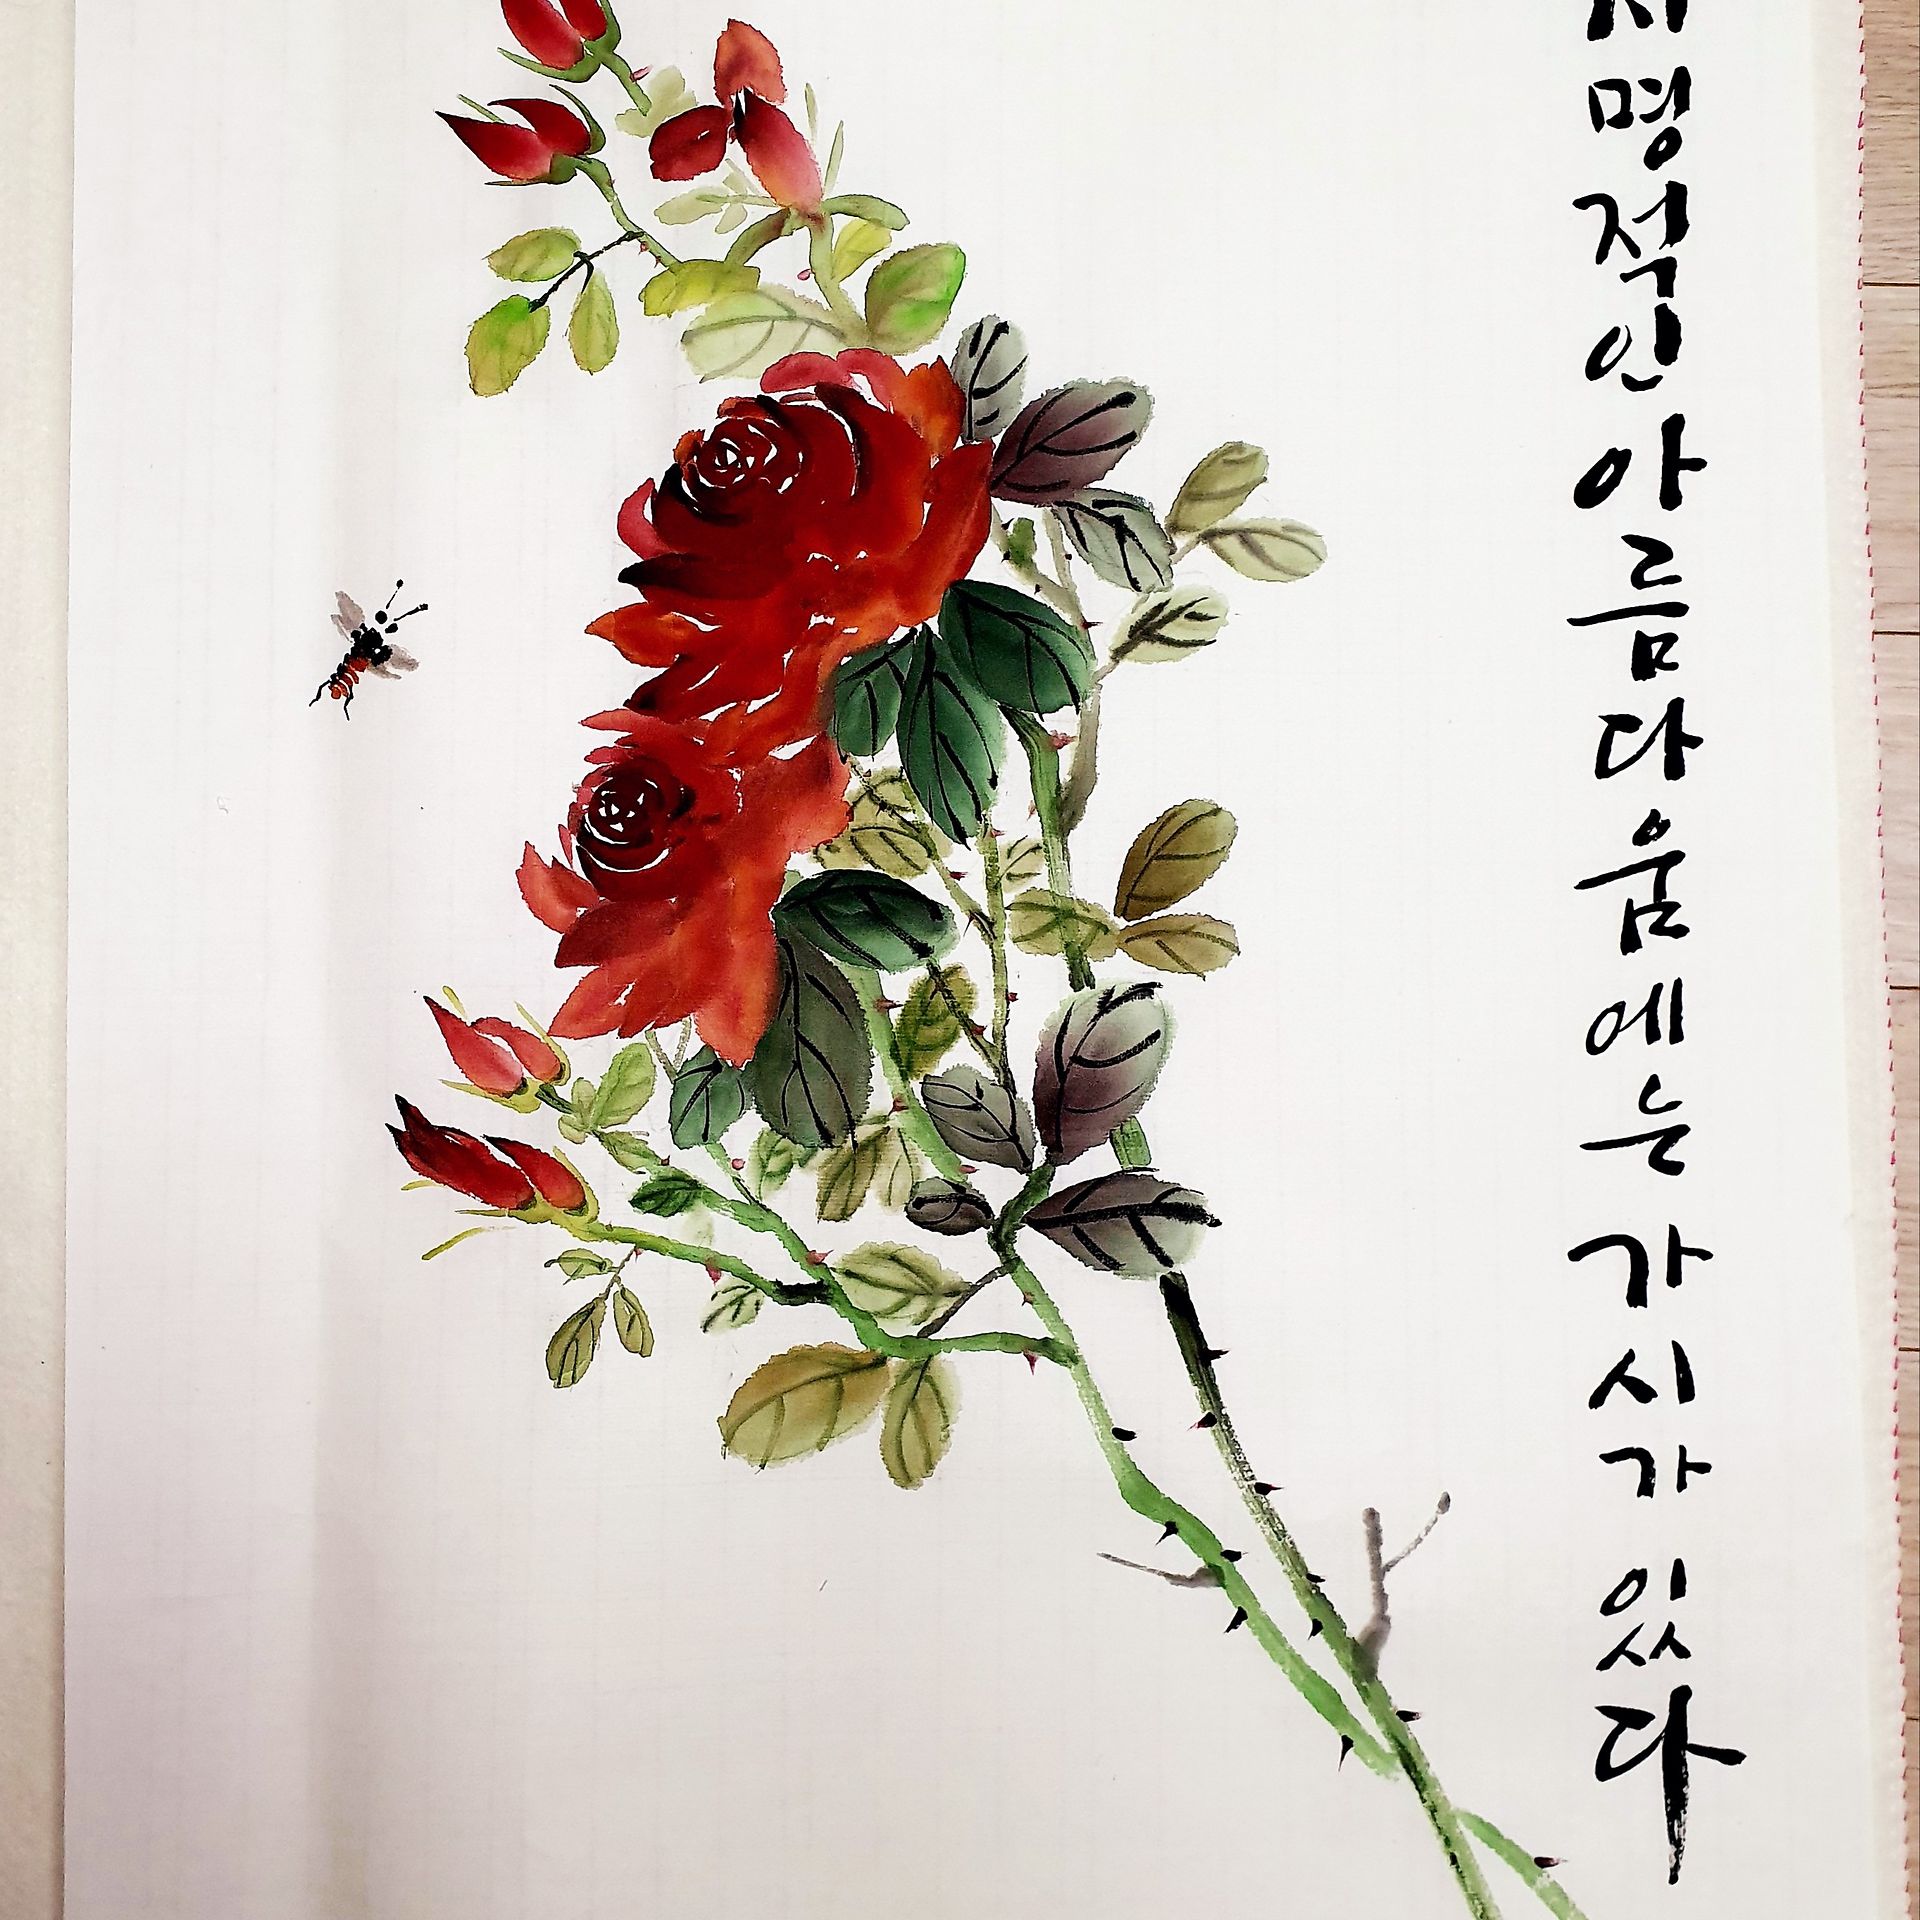 명적인 아름다움에는 가시가 있다